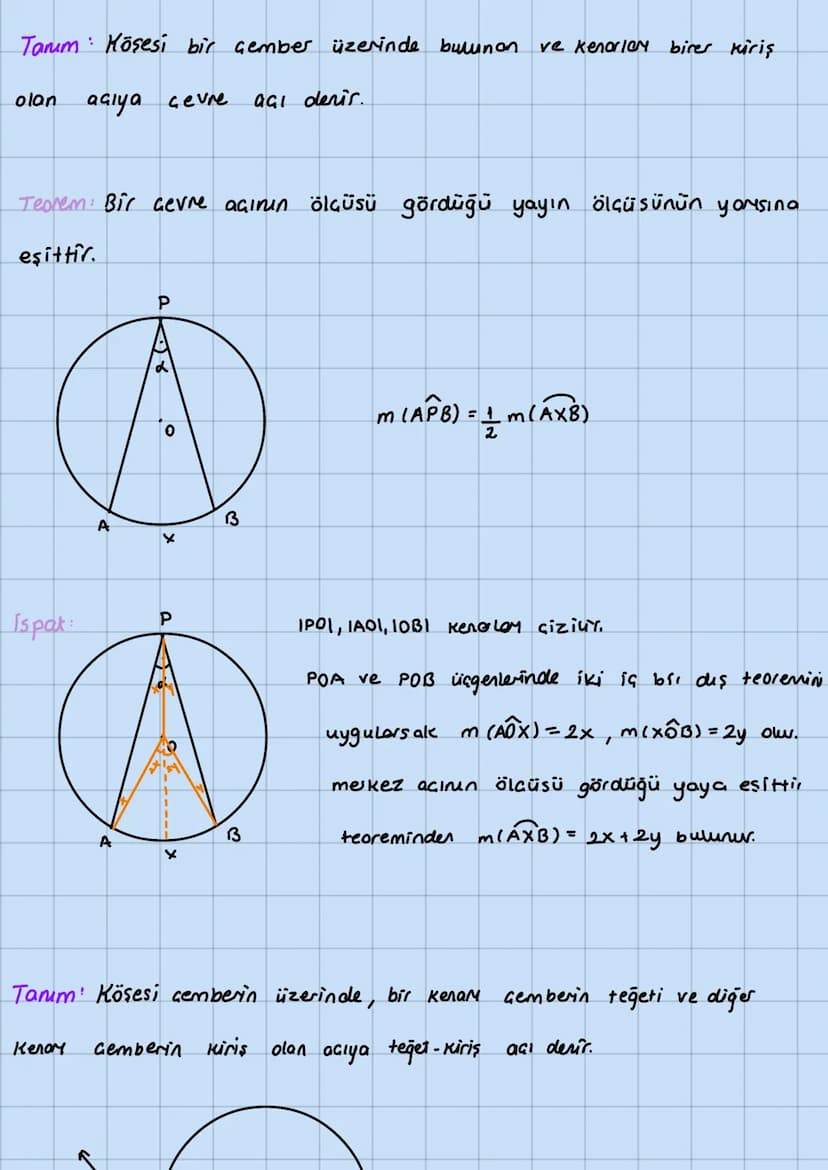 Tanım: Köşesi bir çember üzerinde bulunan ve kenarları birer kiriş
olan açıya çevre açı denir.
Teorem: Bir çevre açının ölçüsü gördüğü yayın ölçüsünün yarısına
eşittir.
P
α
O
m(APB) = 1/2 m(AXB)
A
B
X
İspat:
P
|PO|, |AO|, |OB| kenarları çizilir.
α
POA ve POB üçgenlerinde iki iç bir dış teoremini
O
uygularsak m(AOX) = 2x, m(XOB) = 2y olur.
merkez açının ölçüsü gördüğü yaya eşittir
A
B
teoreminden m(AXB) = 2x+2y bulunur.
X
Tanım: Köşesi çemberin üzerinde, bir kenarı çemberin teğeti ve diğer
kenarı çemberin kiriş olan açıya teğet-kiriş açı denir.